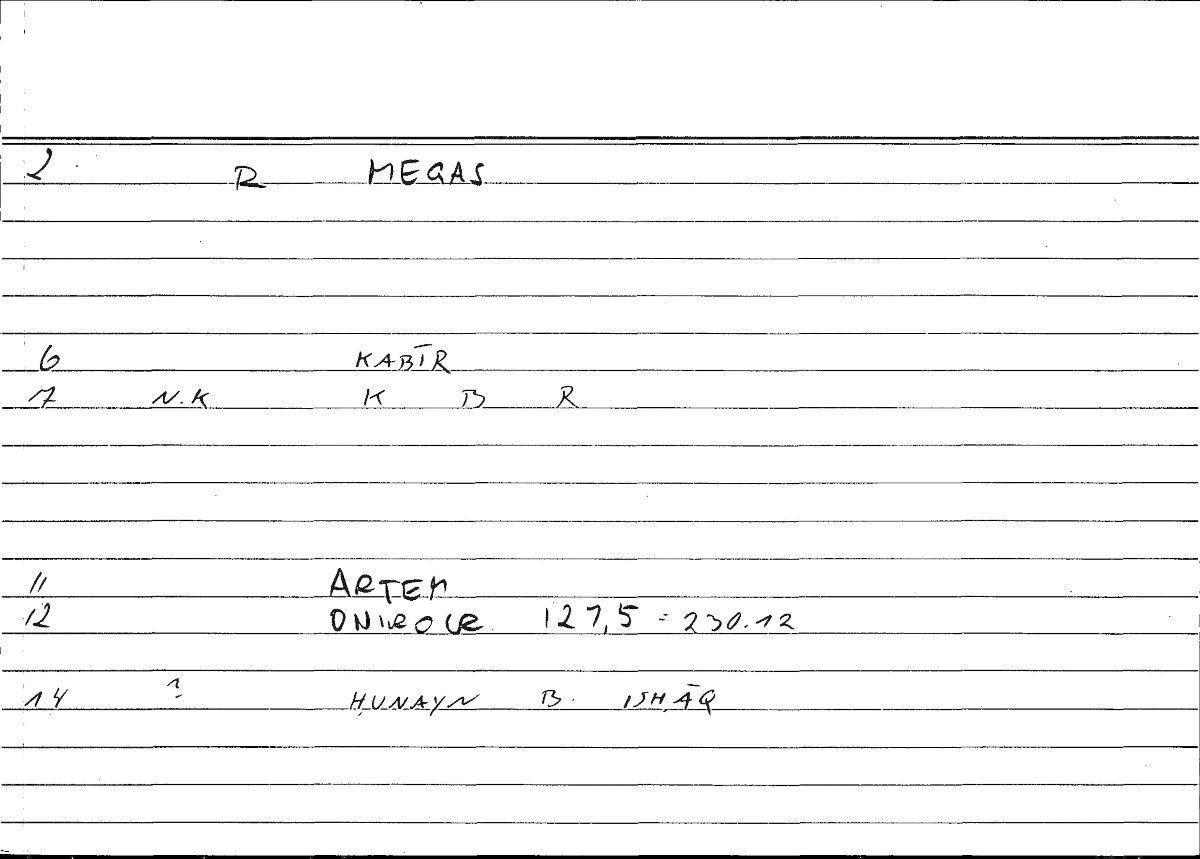 2 R MEGAS
6 KABĪR
7 N.K K B R
11 ARTEM
12 ONIROCR 127,5 = 230.12
14 ? ḤUNAYN B. ISḤĀQ